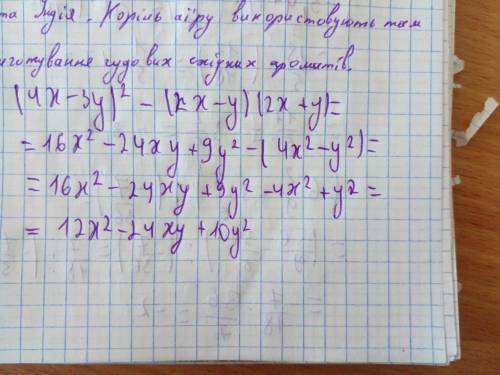 та Індія. Корінь аїру використовують там
иготування чудових східних ароматів.
(4x-3y)² - (2x-y)(2x+y)=
=16x²-24xy+9y²-(4x²-y²)=
=16x²-24xy+9y²-4x²+y2=
= 12x²-24xy+10y²